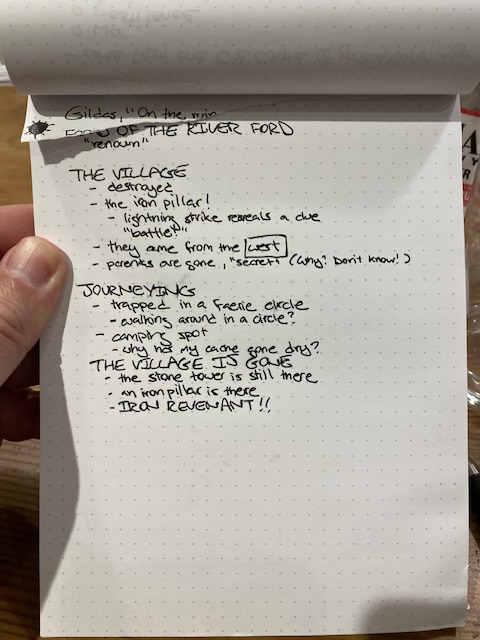 Gildas, "On the ruin
OF THE RIVER FORD
"renown"
THE VILLAGE
- destroyed
- the iron pillar!
- lightning strike reveals a clue
"battle?"
- they came from the west
- parents are gone, "secret" (Why? Don't know!)
JOURNEYING
- trapped in a faerie circle
- walking around in a circle?
- camping spot
- why has my gone dry?
THE VILLAGE IS GONE
- the stone tower is still there
- an iron pillar is there
- IRON REVENANT!!